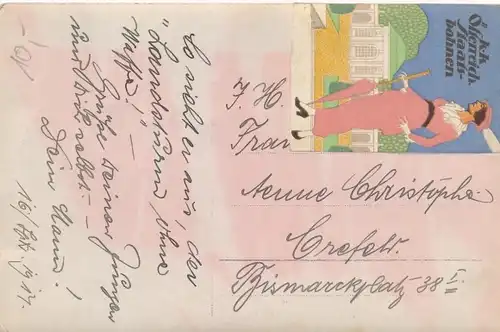 So sieht er aus, der
"Landsturm ohne
Waffe"! —
Grüße deinen Jungen
und dich selbst —
Dein Hans!
16/Sept. 1917.
k.k.
Österreich.
Staats-
bahnen
I. H.
Frau
Aenne Christophe
Crefeld.
Bismarckplatz 38 I.